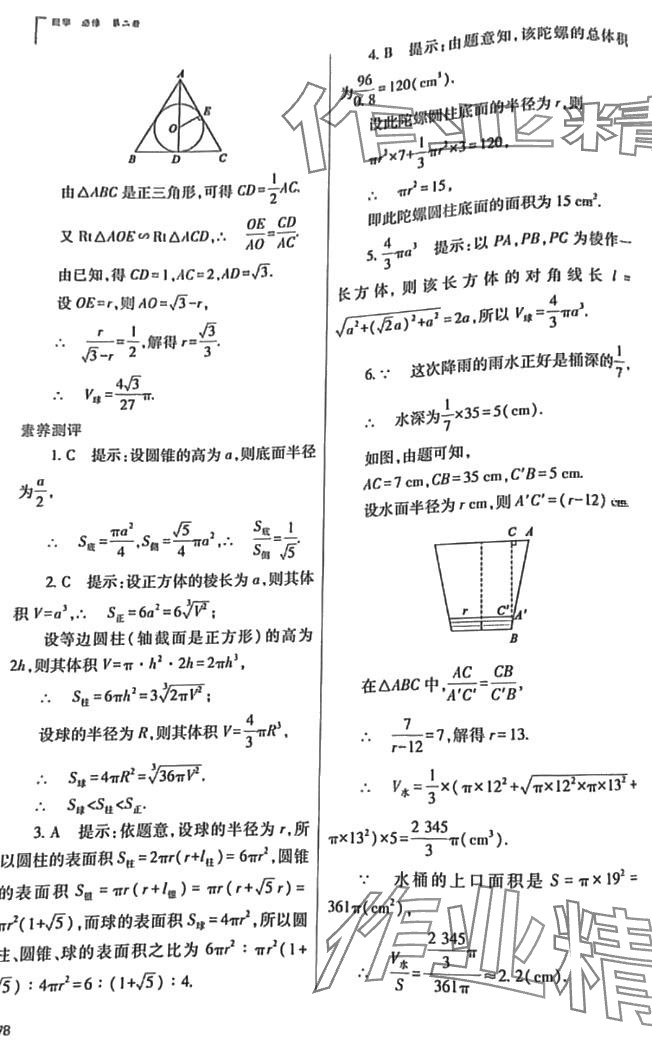 数学 必修 第二册
A
E
O
B
D
C
由△ABC是正三角形,可得CD=1/2AC.
又Rt△AOE∽Rt△ACD,∴ OE/AO=CD/AC.
由已知,得CD=1,AC=2,AD=√3.
设OE=r,则AO=√3-r,
∴ r/(√3-r)=1/2,解得r=√3/3.
∴ V球=4√3/27π.
素养测评
1.C 提示:设圆锥的高为a,则底面半径
为a/2,
∴ S底=πa²/4,S侧=√5/4πa²,∴ S底/S侧=1/√5.
2.C 提示:设正方体的棱长为a,则其体
积V=a³,∴ S正=6a²=6∛V²;
设等边圆柱(轴截面是正方形)的高为
2h,则其体积V=π·h²·2h=2πh³,
∴ S柱=6πh²=3∛2πV²;
设球的半径为R,则其体积V=4/3πR³,
∴ S球=4πR²=∛36πV².
∴ S球<S柱<S正.
3.A 提示:依题意,设球的半径为r,所
以圆柱的表面积S柱=2πr(r+l柱)=6πr²,圆锥
的表面积S锥=πr(r+l锥)=πr(r+√5r)=
πr²(1+√5),而球的表面积S球=4πr²,所以圆
柱、圆锥、球的表面积之比为6πr²:πr²(1+
√5):4πr²=6:(1+√5):4.
78
4.B 提示:由题意知,该陀螺的总体积
为96/0.8=120(cm³).
设此陀螺圆柱底面的半径为r,则
πr²×7+1/3πr²×3=120,
∴ πr²=15,
即此陀螺圆柱底面的面积为15 cm².
5.4/3πa³ 提示:以PA,PB,PC为棱作一
长方体,则该长方体的对角线长l=
√a²+(√2a)²+a²=2a,所以V球=4/3πa³.
6.∵ 这次降雨的雨水正好是桶深的1/7,
∴ 水深为1/7×35=5(cm).
如图,由题可知,
AC=7 cm,CB=35 cm,C′B=5 cm.
设水面半径为r cm,则A′C′=(r-12) cm.
C A
r C′ A′
B
在△ABC中,AC/A′C′=CB/C′B,
∴ 7/(r-12)=7,解得r=13.
∴ V水=1/3×(π×12²+√π×12²×π×13²+
π×13²)×5=2 345/3π(cm³).
∵ 水桶的上口面积是S=π×19²=
361π(cm²),
∴ V水/S=(2 345/3π)/361π≈2.2(cm).
作业精
作业精